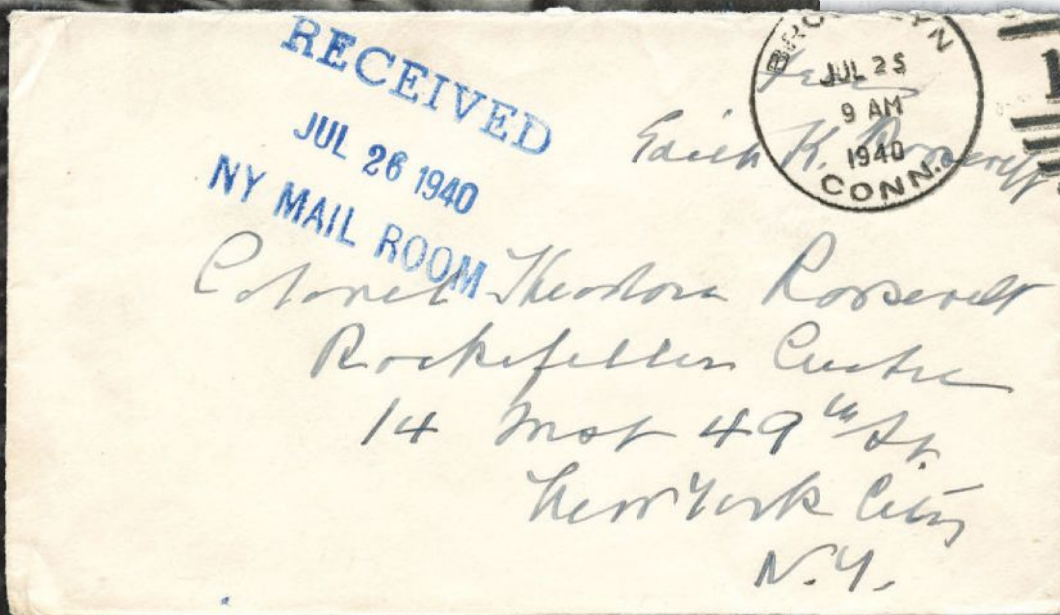 RECEIVED
JUL 26 1940
NY MAIL ROOM
BROOKLYN
JUL 25
9 AM
1940
CONN.
Free
Edith K. Roosevelt
Colonel Theodore Roosevelt
Rockefeller Centre
14 West 49th St.
New York City
N.Y.